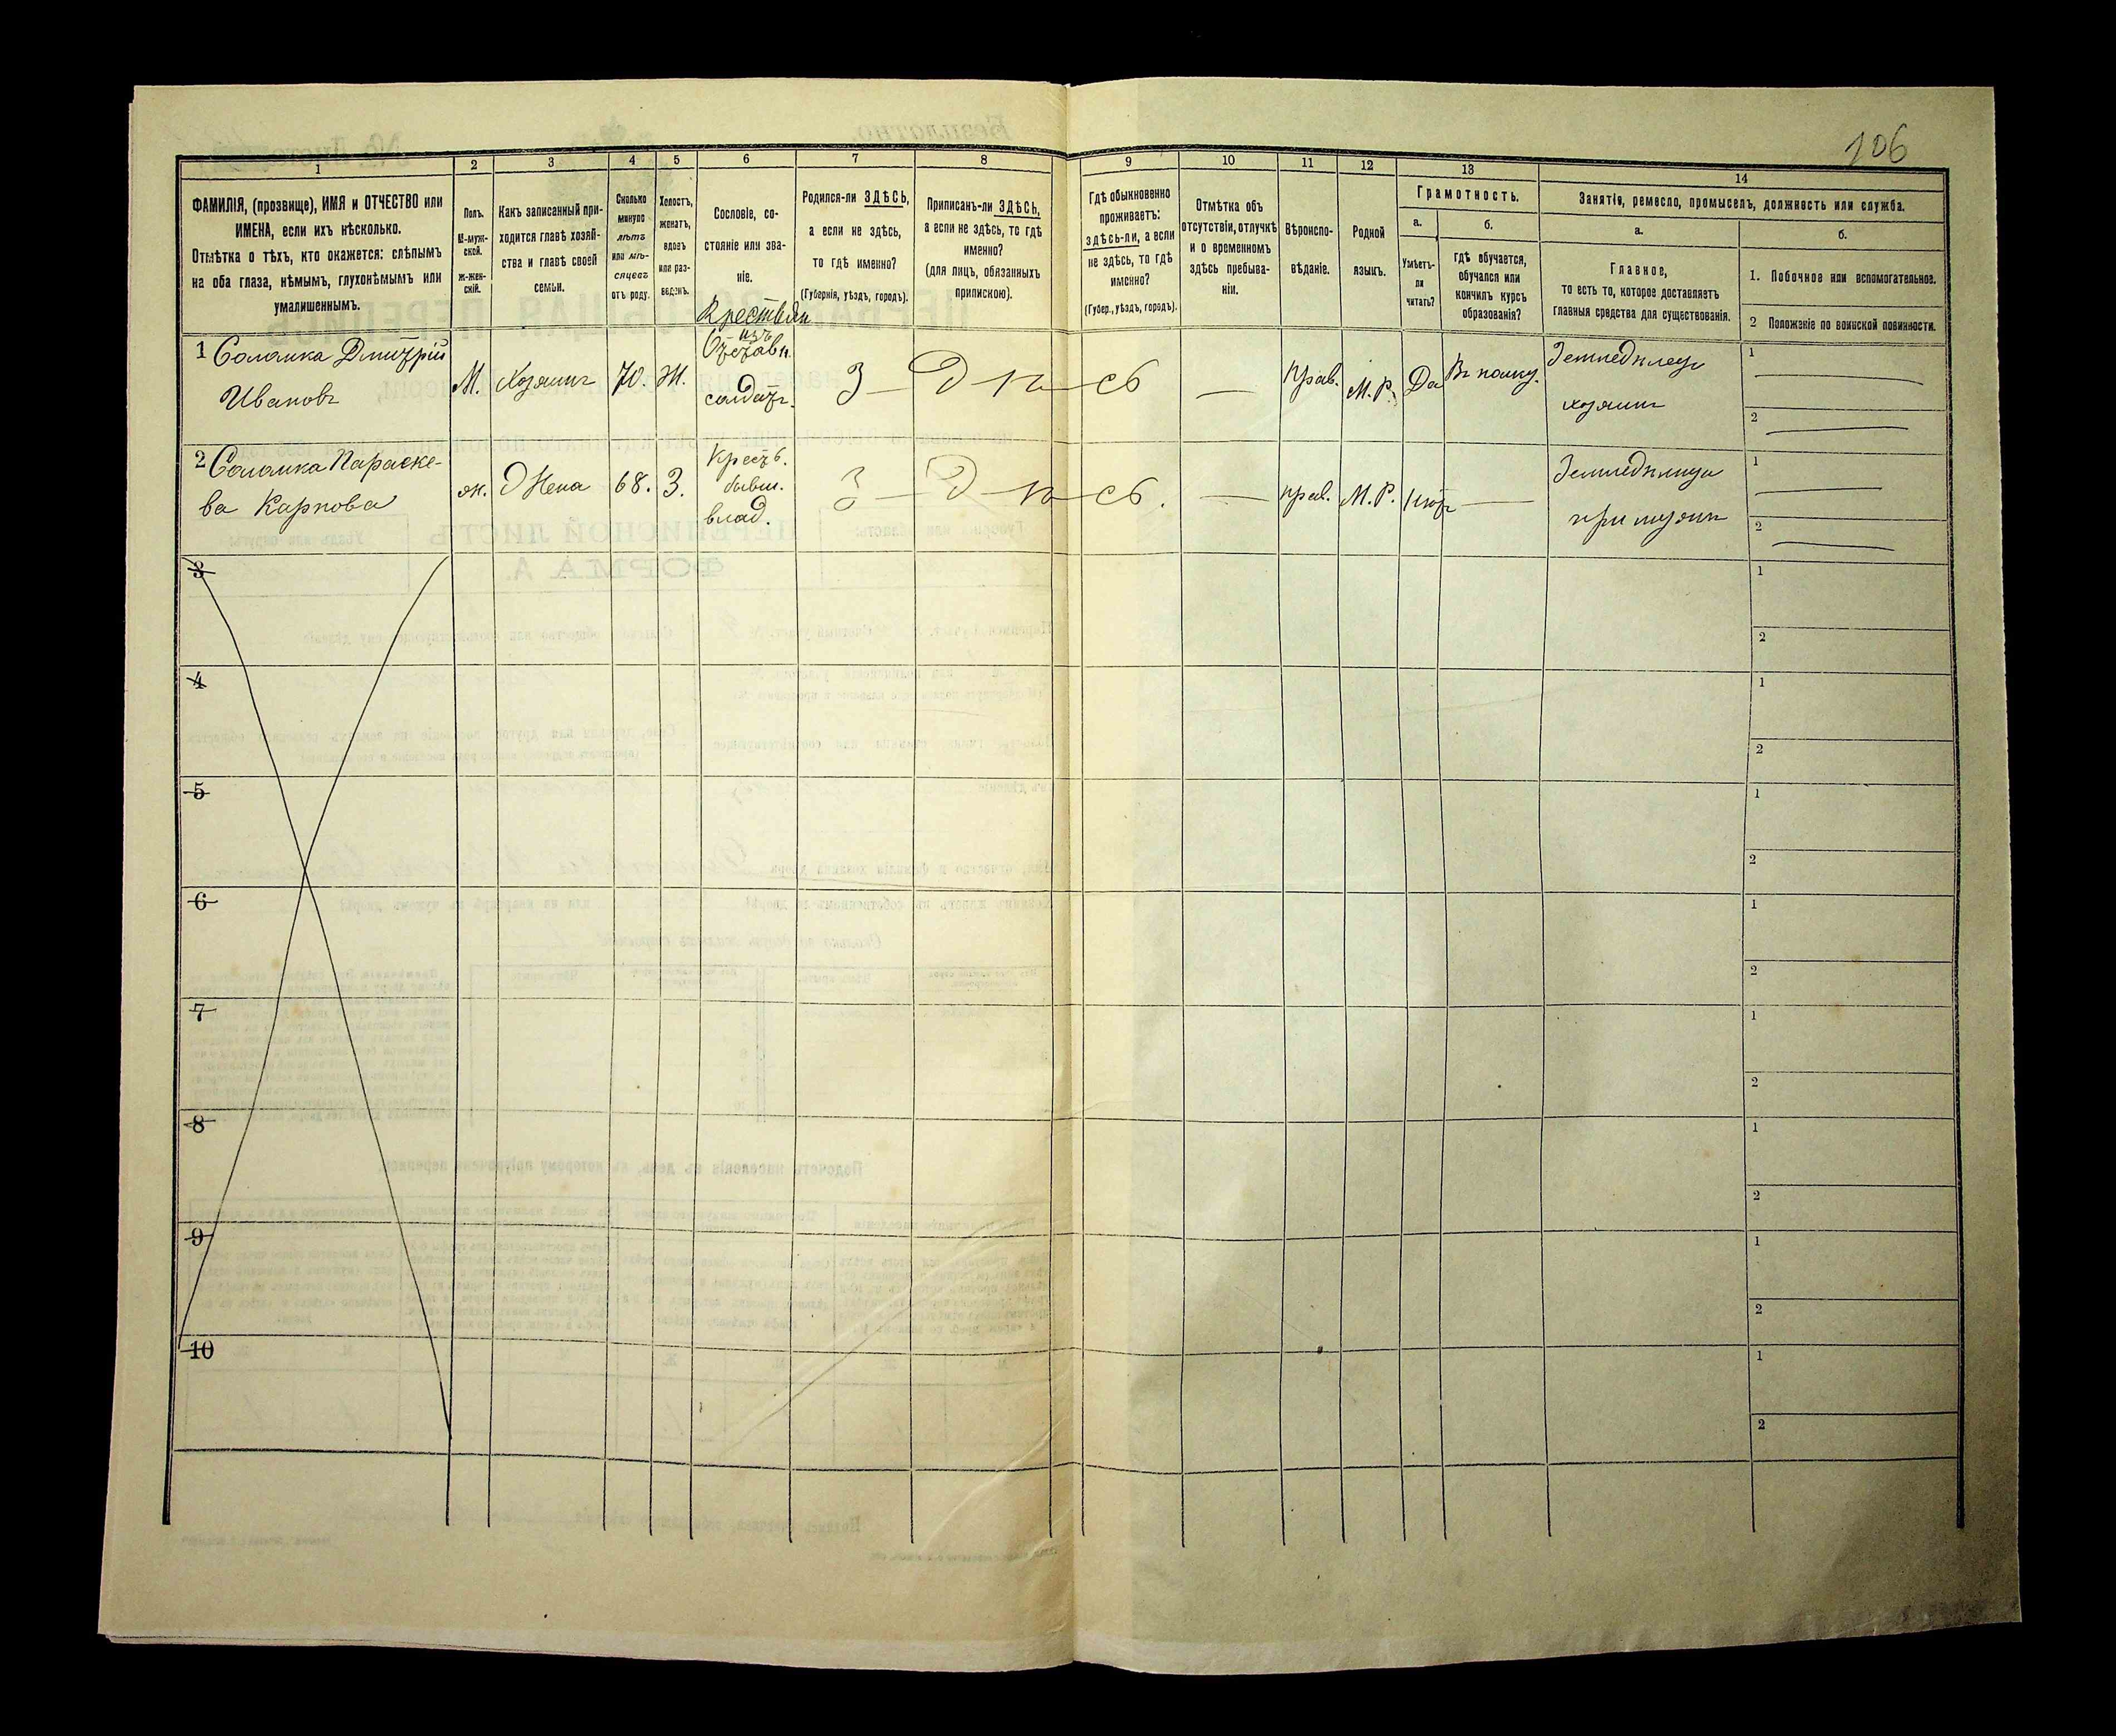 106
1
2
3
4
5
6
7
8
9
10
11
12
13
14
ФАМИЛІЯ, (прозвище), ИМЯ и ОТЧЕСТВО или
ИМЕНА, если ихъ нѣсколько.
Отмѣтка о тѣхъ, кто окажется: слѣпымъ
на оба глаза, нѣмымъ, глухонѣмымъ или
умалишеннымъ.
Полъ.
М-муж-
ской.
Ж-жен-
скій.
Какъ записанный при-
ходится главѣ хозяй-
ства и главѣ своей
семьи.
Сколько
минуло
лѣтъ
или мѣ-
сяцевъ
отъ роду.
Холостъ,
женатъ,
вдовъ
или раз-
веденъ.
Сословіе, со-
стояніе или зва-
ніе.
Родился-ли ЗДѢСЬ,
а если не здѣсь,
то гдѣ именно?
(Губернія, уѣздъ, городъ).
Приписанъ-ли ЗДѢСЬ,
а если не здѣсь, то гдѣ
именно?
(для лицъ, обязанныхъ
припискою).
Гдѣ обыкновенно
проживаетъ:
здѣсь-ли, а если
не здѣсь, то гдѣ
именно?
(Губер., уѣздъ, городъ).
Отмѣтка объ
отсутствіи, отлучкѣ
и о временномъ
здѣсь пребыва-
ніи.
Вѣроиспо-
вѣданіе.
Родной
языкъ.
Грамотность.
а.
Умѣетъ-
ли
читать?
б.
гдѣ обучается,
обучался или
кончилъ курсъ
образованія?
Занятіе, ремесло, промыселъ, должность или служба.
а.
Главное,
то есть то, которое доставляетъ
главныя средства для существованія.
б.
1. Побочное или вспомогательное.
2 Положеніе по воинской повинности.
1 Соломка Дмитрій
Ивановъ
М.
Хозяинъ
70.
Ж.
Крестьян
изъ
Отставн.
солдатъ.
З — Д — ѣ — сь
—
Прав.
М.Р.
Да
Въ полку.
Земледѣлецъ
хозяинъ
1
2
2 Соломка Параске-
ва Карпова
ж.
Жена
68.
З.
Крестьб.
бывш.
влад.
З — Д — ѣ — сь.
—
прав.
М.Р.
Нѣтъ
—
Земледѣлица
при мужѣ
1
2
3
1
2
4
1
2
5
1
2
6
1
2
7
1
2
8
1
2
9
1
2
10
1
2